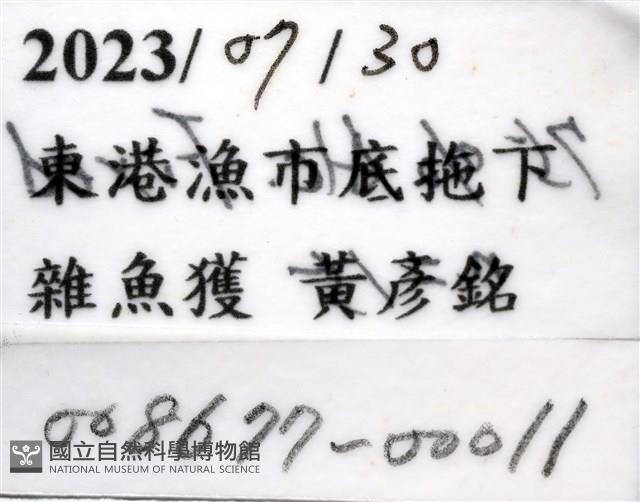 2023/07/30
東港漁市底拖下
雜魚獲 黃彥銘
008677-00011
國立自然科學博物館
NATIONAL MUSEUM OF NATURAL SCIENCE